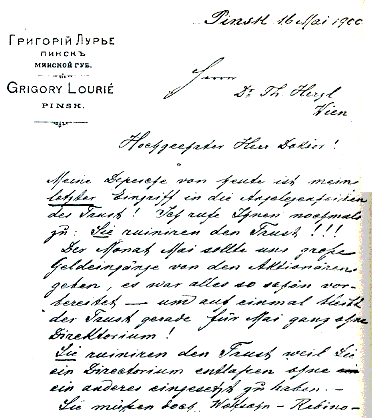 Pinsk 16 Mai 1900
ГРИГОРІЙ ЛУРЬЕ
ПИНСКЪ
МИНСКОЙ ГУБ.
GRIGORY LOURIÉ
PINSK.
Herrn
Dr. Th. Herzl
Wien
Hochgeehrter Herr Doktor!
Meine Depesche von heute ist mein
letzter Eingriff in die Angelegenheiten
des Trust! Ich rufe Ihnen nochmals
zu: Sie ruiniren den Trust!!!
Der Monat Mai sollte uns große
Geldeingänge von den Aktionären
geben, es war alles so schön vor-
bereitet — und auf einmal bleibt
der Trust gerade für Mai ganz ohne
Direktorium!
Sie ruiniren den Trust weil Sie
ein Directorium entlassen ohne
ein anderes eingesetzt zu haben. —
Sie müßen doch, Wolfsohn - Rabino-